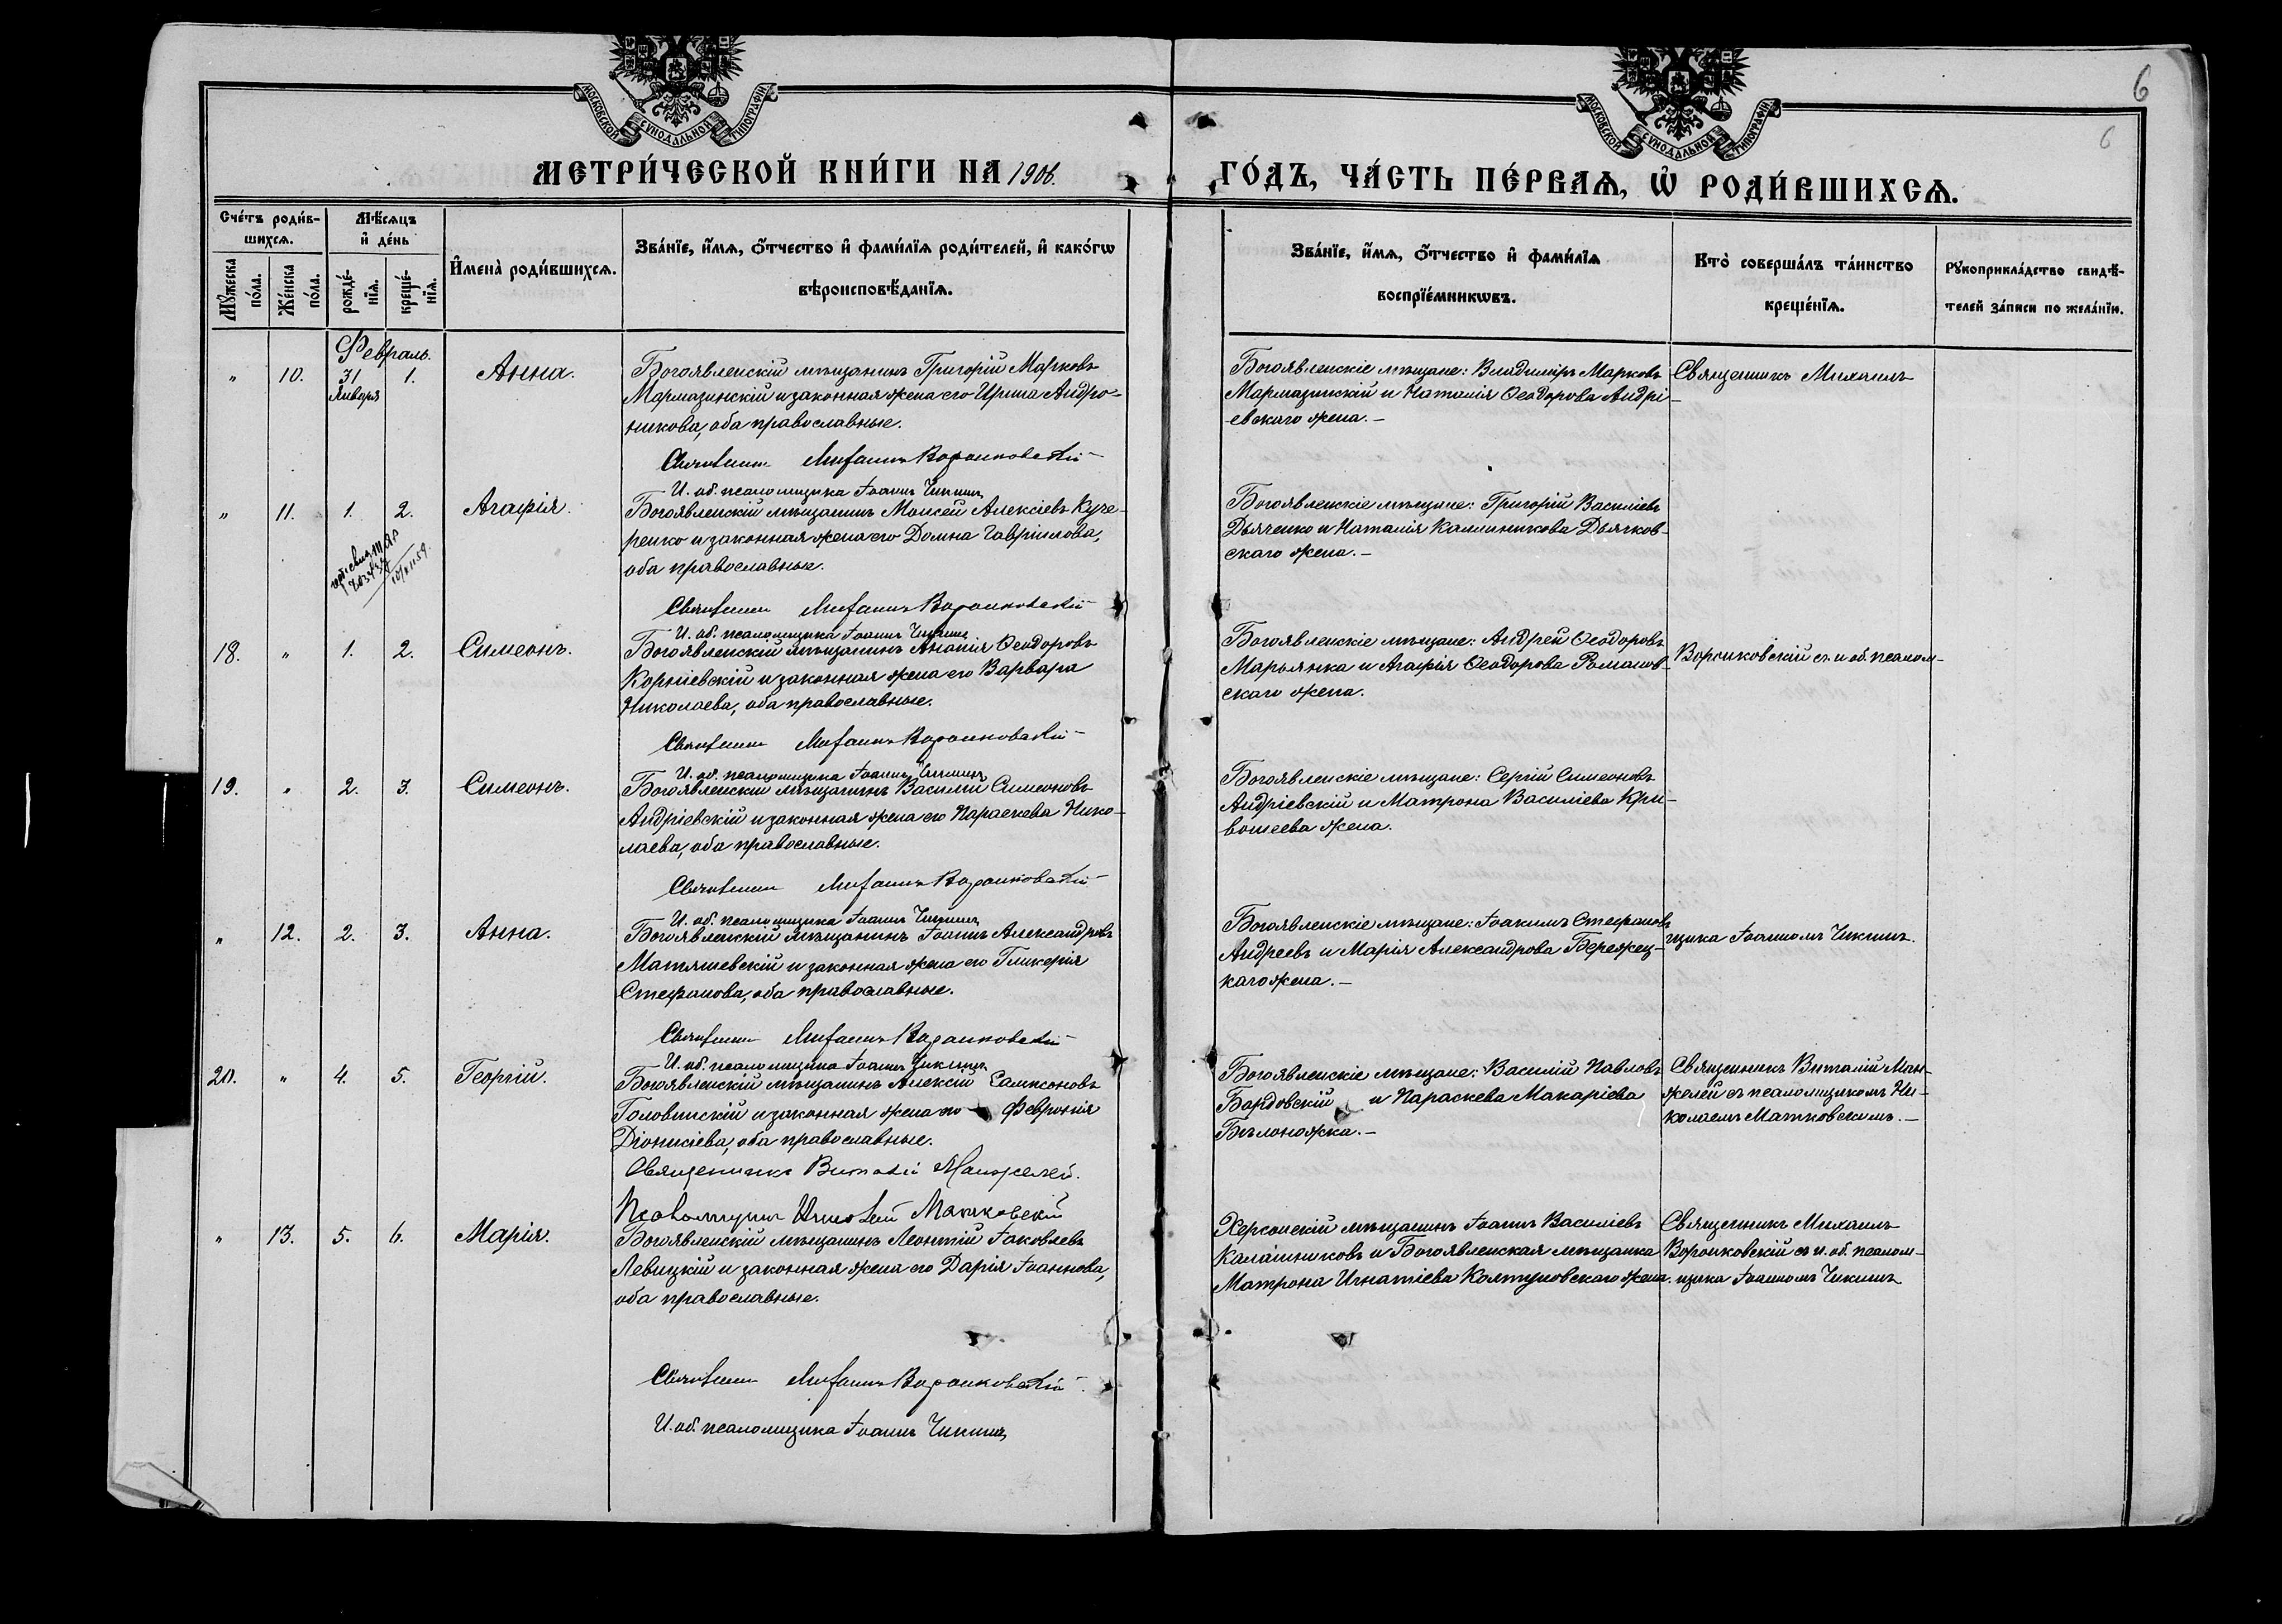 6
6
МОСКОВСКОЙ СѴНОДАЛЬНОЙ ТИПОГРАФІИ
МОСКОВСКОЙ СѴНОДАЛЬНОЙ ТИПОГРАФІИ
МЕТРИ́ЧЕСКОЙ КНИ́ГИ НА 1906. ГО́ДЪ, ЧА́СТЬ ПЕ́РВАѦ, Ѡ҆ РОДИ́ВШИХСѦ.
Сче́тъ роди́в-
шихсѧ.
Мꙋ́жеска по́ла.
Же́нска по́ла.
Мѣ́сѧцъ и҆ де́нь
рожде́-нїѧ.
креще́-нїѧ.
И҆мена̀ роди́вшихсѧ.
Зва́нїе, и҆́мѧ, ѻ҆́тчество и҆ фами́лїѧ роди́телей, и҆ како́гѡ
вѣроисповѣ́данїѧ.
Зва́нїе, и҆́мѧ, ѻ҆́тчество и҆ фами́лїѧ
воспрїе́мникѡвъ.
Кто̀ соверша́лъ та́инство
креще́нїѧ.
Рꙋкоприкла́дство свидѣ́-
телей за́писи по жела́нїю.
Февраль.
" 10. 31 Января 1. Анна.
Богоявленскій мѣщанинъ Григорій Марковъ
Мармазинскій и законная жена его Ирина Андро-
никова, оба православные.
Священникъ Михаилъ Воронковскій
И. об. псаломщика Іоаннъ Чикинъ
Богоявленскіе мѣщане: Владиміръ Марковъ
Мармазинскій и Наталія Ѳеодорова Андрі-
евскаго жена.
Священникъ Михаилъ
" 11. 1. 2. Агафія.
10/XII 59.
Богоявленскій мѣщанинъ Моисей Алексіевъ Куче-
ренко и законная жена его Домна Гавріилова,
оба православные.
Священникъ Михаилъ Воронковскій
И. об. псаломщика Іоаннъ Чикинъ
Богоявленскіе мѣщане: Григорій Василіевъ
Дьяченко и Наталія Каллиникова Дьячков-
скаго жена.
18. " 1. 2. Симеонъ.
Богоявленскій мѣщанинъ Ананія Ѳеодоровъ
Корніевскій и законная жена его Варвара
Николаева, оба православные.
Священникъ Михаилъ Воронковскій
И. об. псаломщика Іоаннъ Чикинъ
Богоявленскіе мѣщане: Андрей Ѳеодоровъ
Марьянка и Агафія Ѳеодорова Романов-
скаго жена.
Воронковскій съ и об. псалом-
19. " 2. 3. Симеонъ.
Богоявленскій мѣщанинъ Василій Симеоновъ
Андріевскій и законная жена его Параскева Нико-
лаева, оба православные.
Священникъ Михаилъ Воронковскій
И. об. псаломщика Іоаннъ Чикинъ
Богоявленскіе мѣщане: Сергій Симеоновъ
Андріевскій и Матрона Василіева Кри-
вошеева жена.
" 12. 2. 3. Анна.
Богоявленскій мѣщанинъ Іоаннъ Александровъ
Матяшевскій и законная жена его Гликерія
Стефанова, оба православные.
Священникъ Михаилъ Воронковскій
И. об. псаломщика Іоаннъ Чикинъ
Богоявленскіе мѣщане: Іоакимъ Стефановъ
Андреевъ и Марія Александрова Бережец-
каго жена.
щика Іоанномъ Чикинъ.
20. " 4. 5. Георгій.
Богоявленскій мѣщанинъ Алексій Сампсоновъ
Головинскій и законная жена его Февронія
Діонисіева, оба православные.
Священникъ Виталій Манжелей.
Псаломщикъ Николай Матковскій
Богоявленскіе мѣщане: Василій Павловъ
Бардовскій и Параскева Макаріева
Бѣлоножка.
Священникъ Виталій Ман-
желей съ псаломщикомъ Ни-
колаемъ Матковскимъ.
" 13. 5. 6. Марія.
Богоявленскій мѣщанинъ Леонтій Іаковлевъ
Левицкій и законная жена его Дарія Іоаннова,
оба православные.
Священникъ Михаилъ Воронковскій
И. об. псаломщика Іоаннъ Чикинъ
Херсонскій мѣщанинъ Іоаннъ Василіевъ
Калашниковъ и Богоявленская мѣщанка
Матрона Игнатіева Колтуновскаго жена.
Священникъ Михаилъ
Воронковскій съ и. об. псалом-
щика Іоанномъ Чикинъ